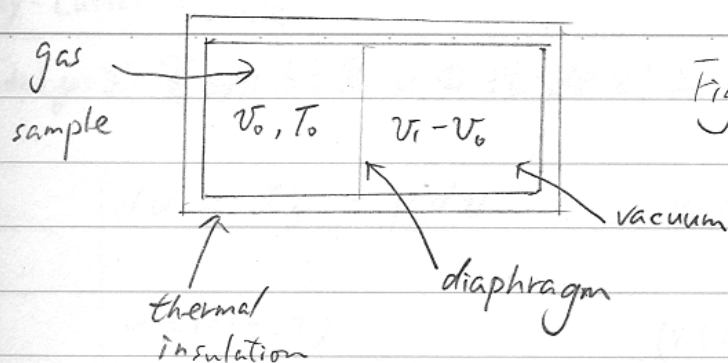 gas
sample
V₀, T₀
V₁ - V₀
Fig
vacuum
diaphragm
thermal
insulation